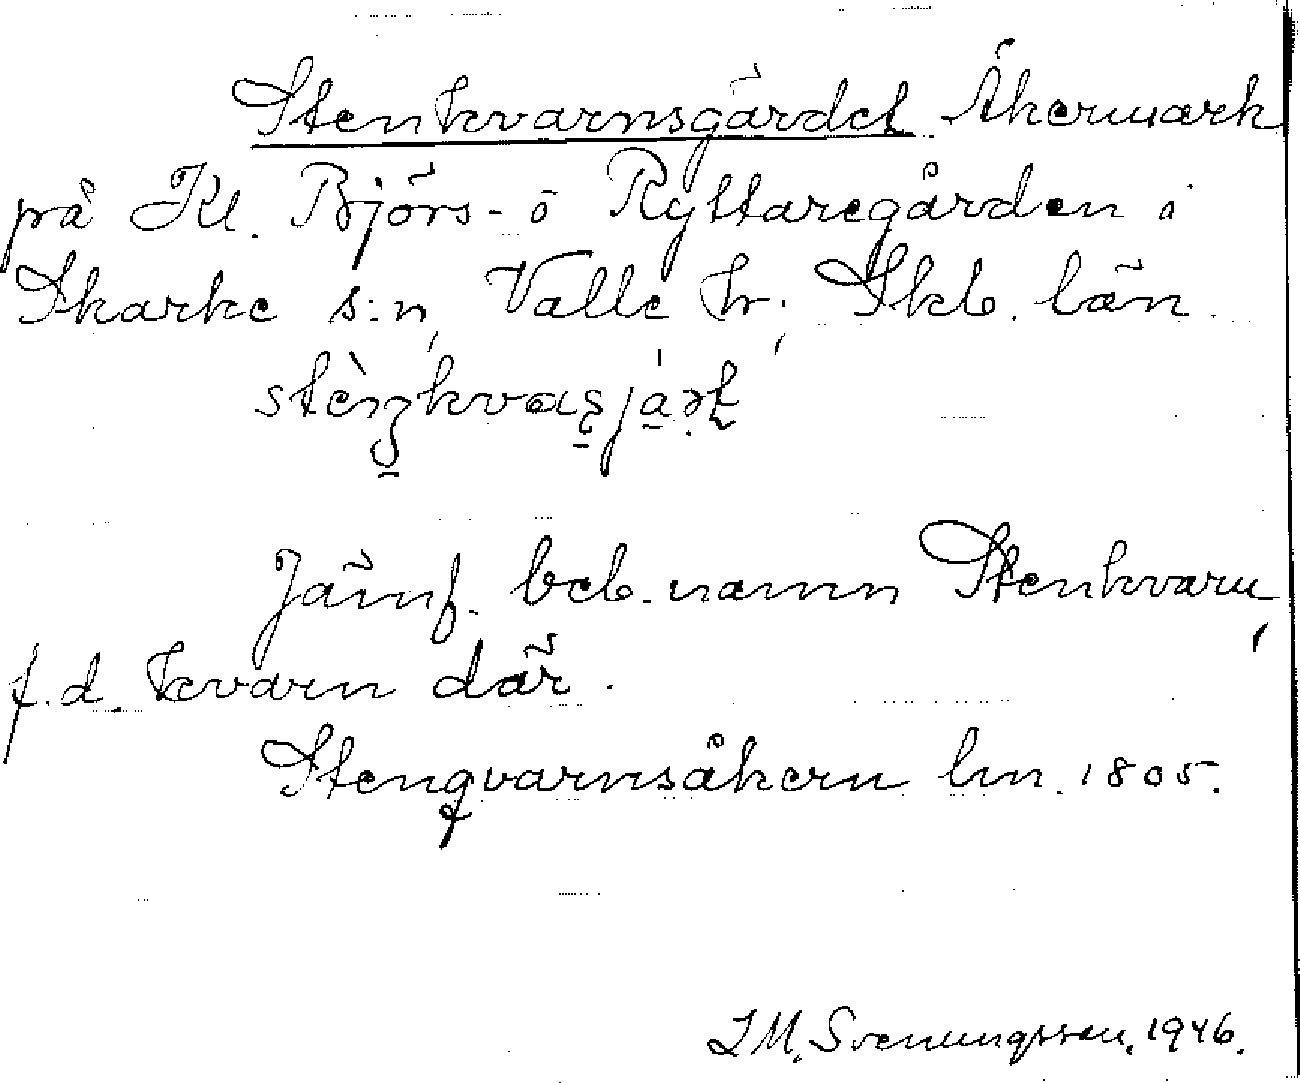 Stenkvarnsgärdet Åkermark
på Kl. Björs- o Ryttaregården i
Skarke s:n, Valle hr, Skb. län.
Jämf. beb. namn Stenkvarn,
f.d. kvarn där.
Stenqvarnsåkern lm. 1805.
I M. Svenungsson. 1946.